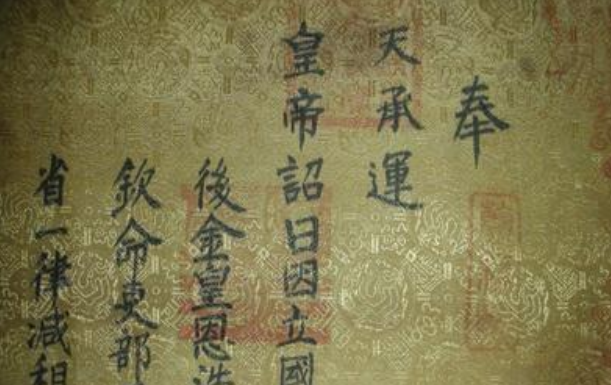 奉
天承運
皇帝詔日因立國
後金皇恩浩
欽命吏部
省一律減租